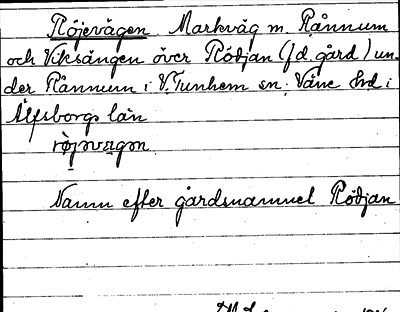 Röjevägen. Markväg m. Rånnum
och Viksängen över Rödjan (f.d. gård) un-
der Rånnum i V. Tunhem sn. Väne hd i
Älfsborgs län
Namn efter gårdsnamnet Rödjan